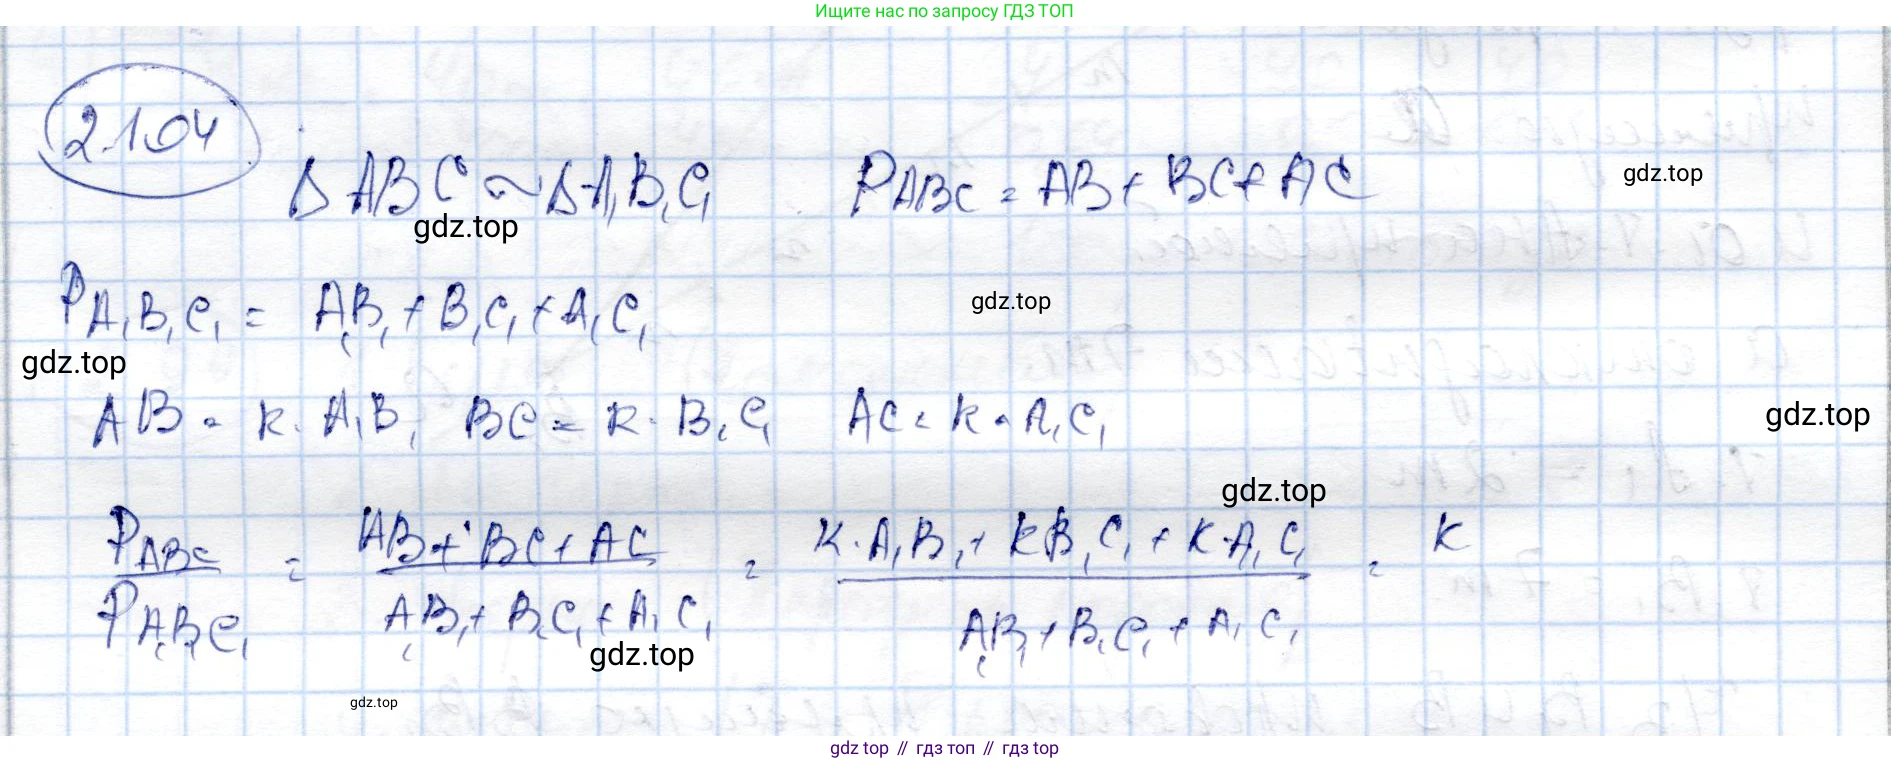 Ищите нас по запросу ГДЗ ТОП
2.104
Δ ABC ~ Δ A₁B₁C₁ P_ABC = AB + BC + AC
gdz.top
gdz.top
P_A₁B₁C₁ = A₁B₁ + B₁C₁ + A₁C₁
gdz.top
gdz.top
AB = k · A₁B₁ BC = k · B₁C₁ AC = k · A₁C₁
gdz.top
gdz.top
P_ABC / P_A₁B₁C₁ = (AB + BC + AC) / (A₁B₁ + B₁C₁ + A₁C₁) = (k · A₁B₁ + kB₁C₁ + k · A₁C₁) / (A₁B₁ + B₁C₁ + A₁C₁) = k
gdz.top
gdz.top
gdz top // гдз топ // гдз top